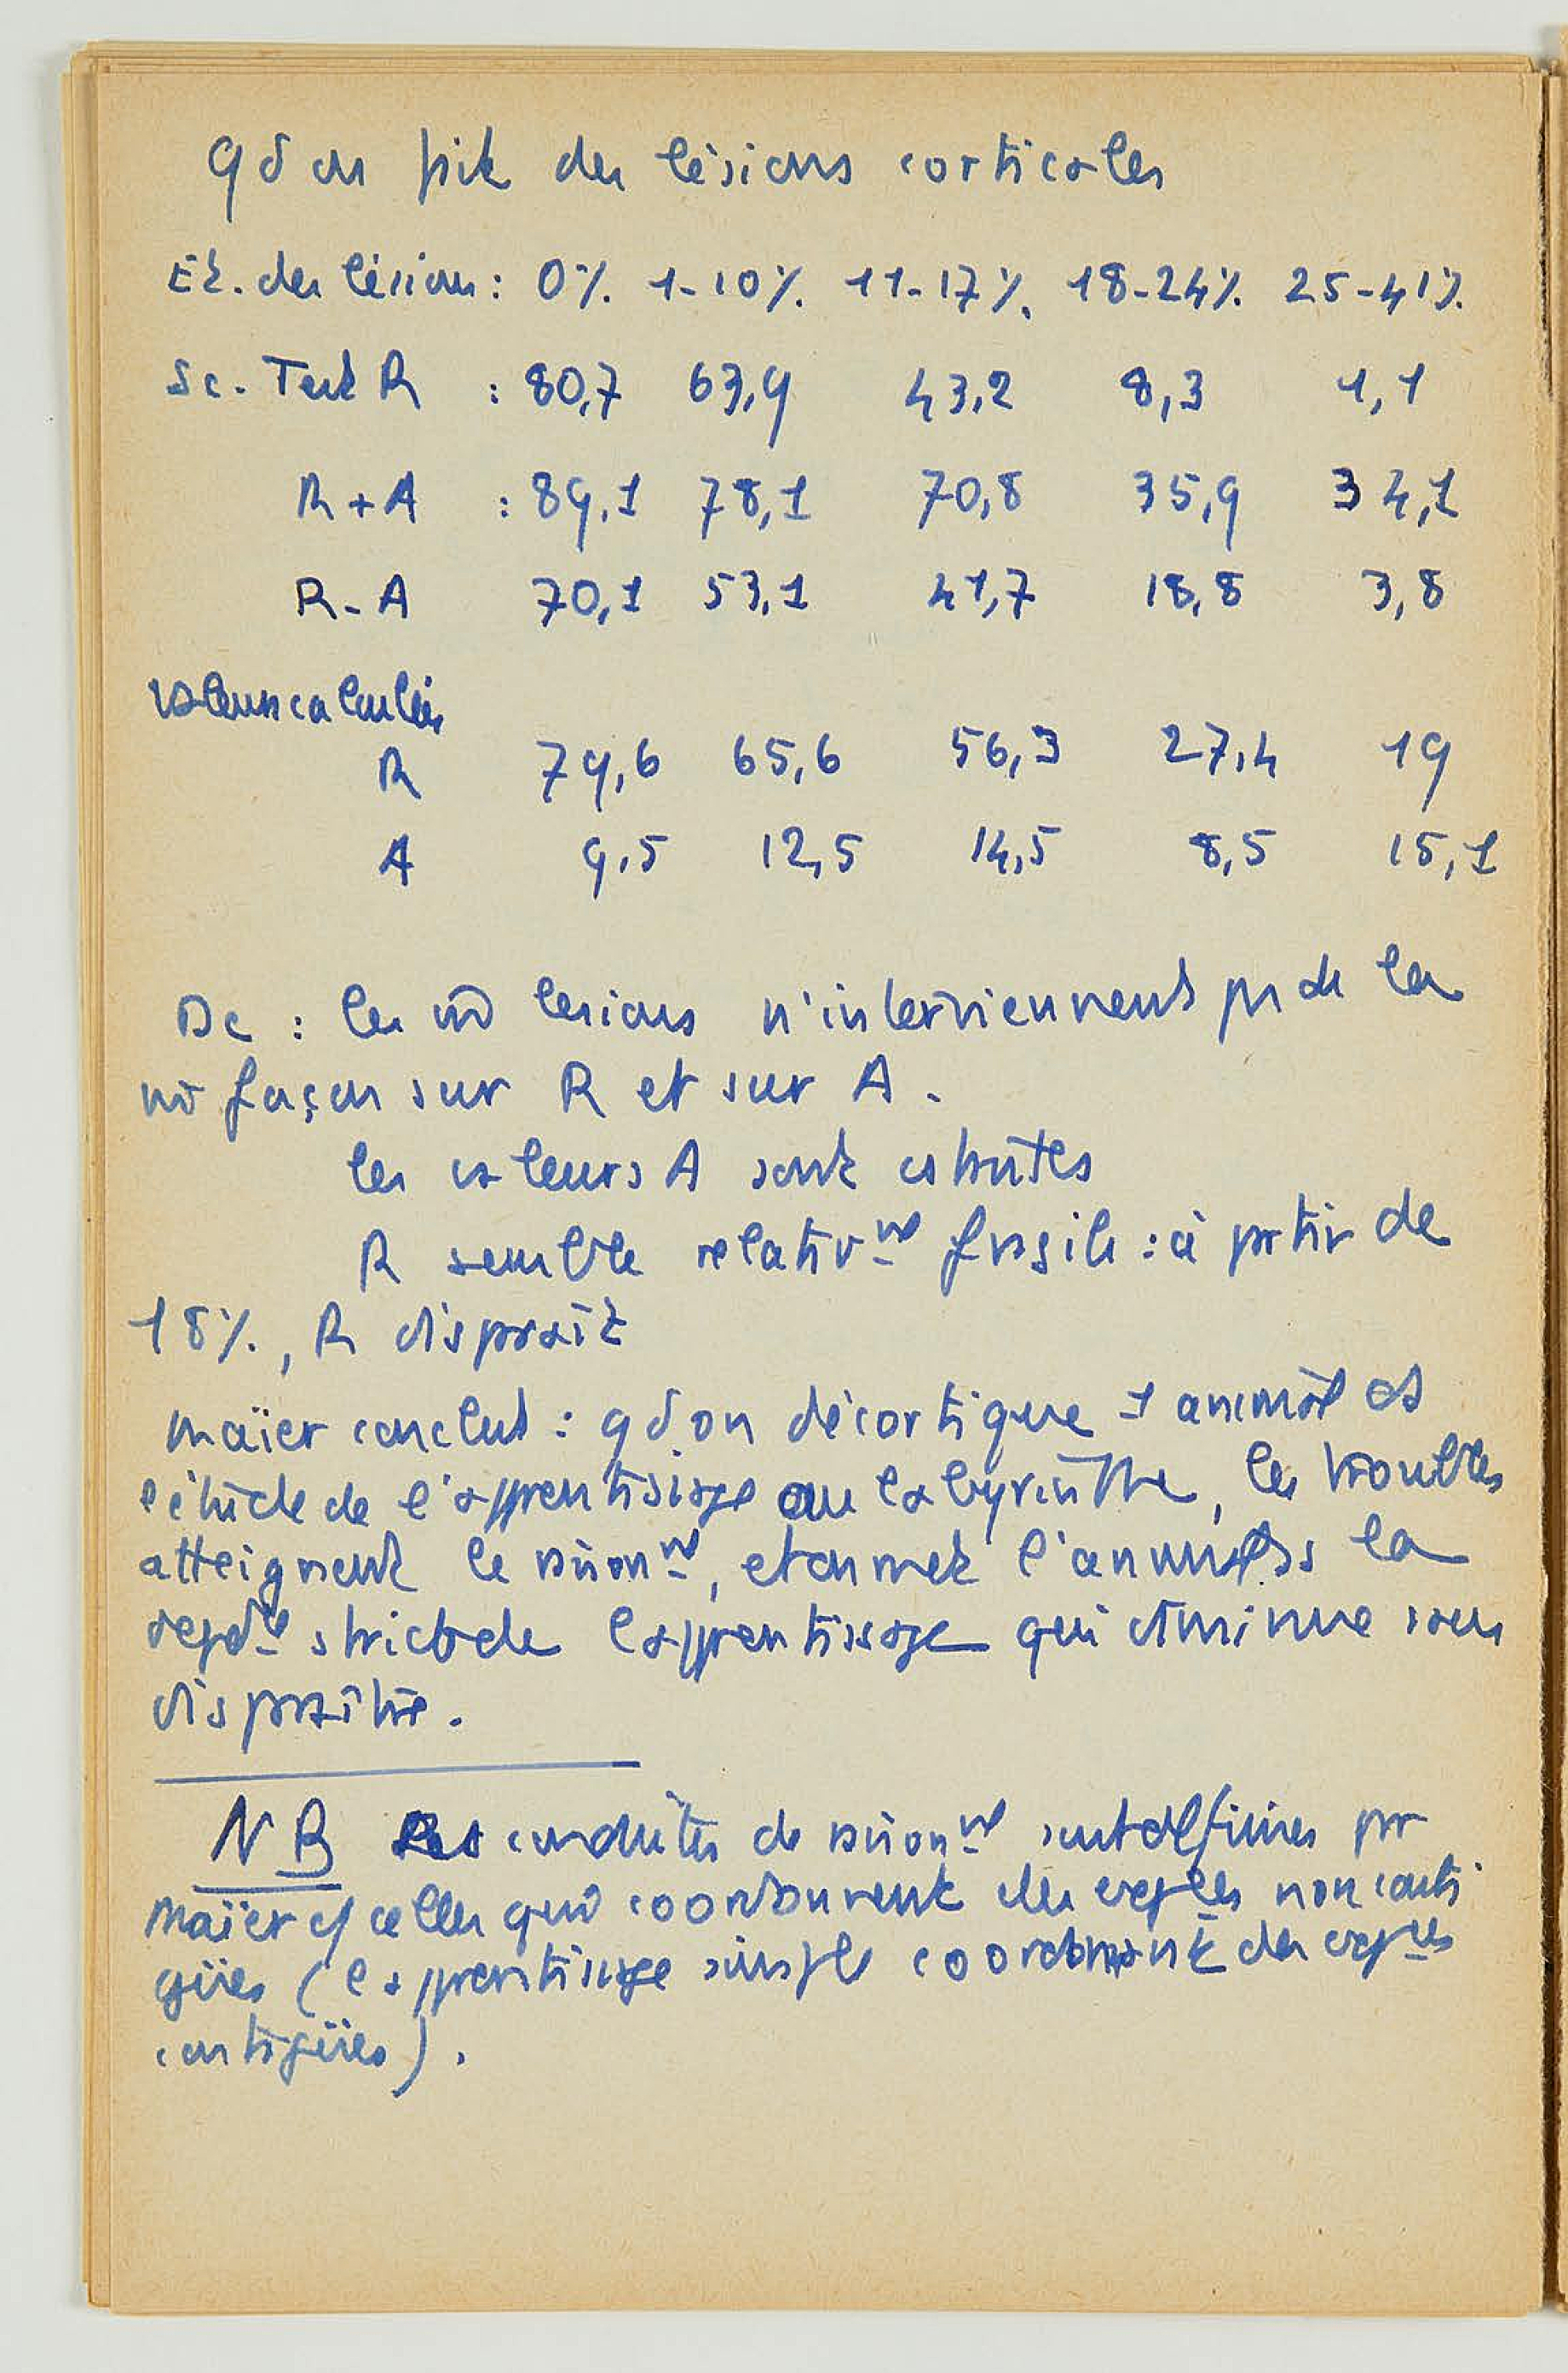 qd on fait des lésions corticales
Et. des lésions : 0% 1-10% 11-17% 18-24% 25-41%
Sc. Test R : 80,7 63,9 43,2 8,3 1,1
R+A : 89,1 78,1 70,8 35,9 34,1
R-A 70,1 53,1 41,7 18,8 3,8
valeurs calculées
R 79,6 65,6 56,3 27,4 19
A 9,5 12,5 14,5 8,5 15,1
Dc : les m̂ lésions n'interviennent ps de la
m̂ façon sur R et sur A.
les valeurs A sont cstntes
R semble relativᵗ fragile : à partir de
18%, R disparaît
Maïer conclut : qd on décortique 1 animal et
étude de l'apprentissage au labyrinthe, les troubles
atteignent le raisonᵗ, et on met l'animal ds la
strict de l'apprentissage qui diminue sans
disparaître.
NB Les conduites de raisonᵗ sont définies par
Maïer c/ celles qui coordonnent des expces non conti
gües (l'apprentissage simple coordonnant des expces
contigües).